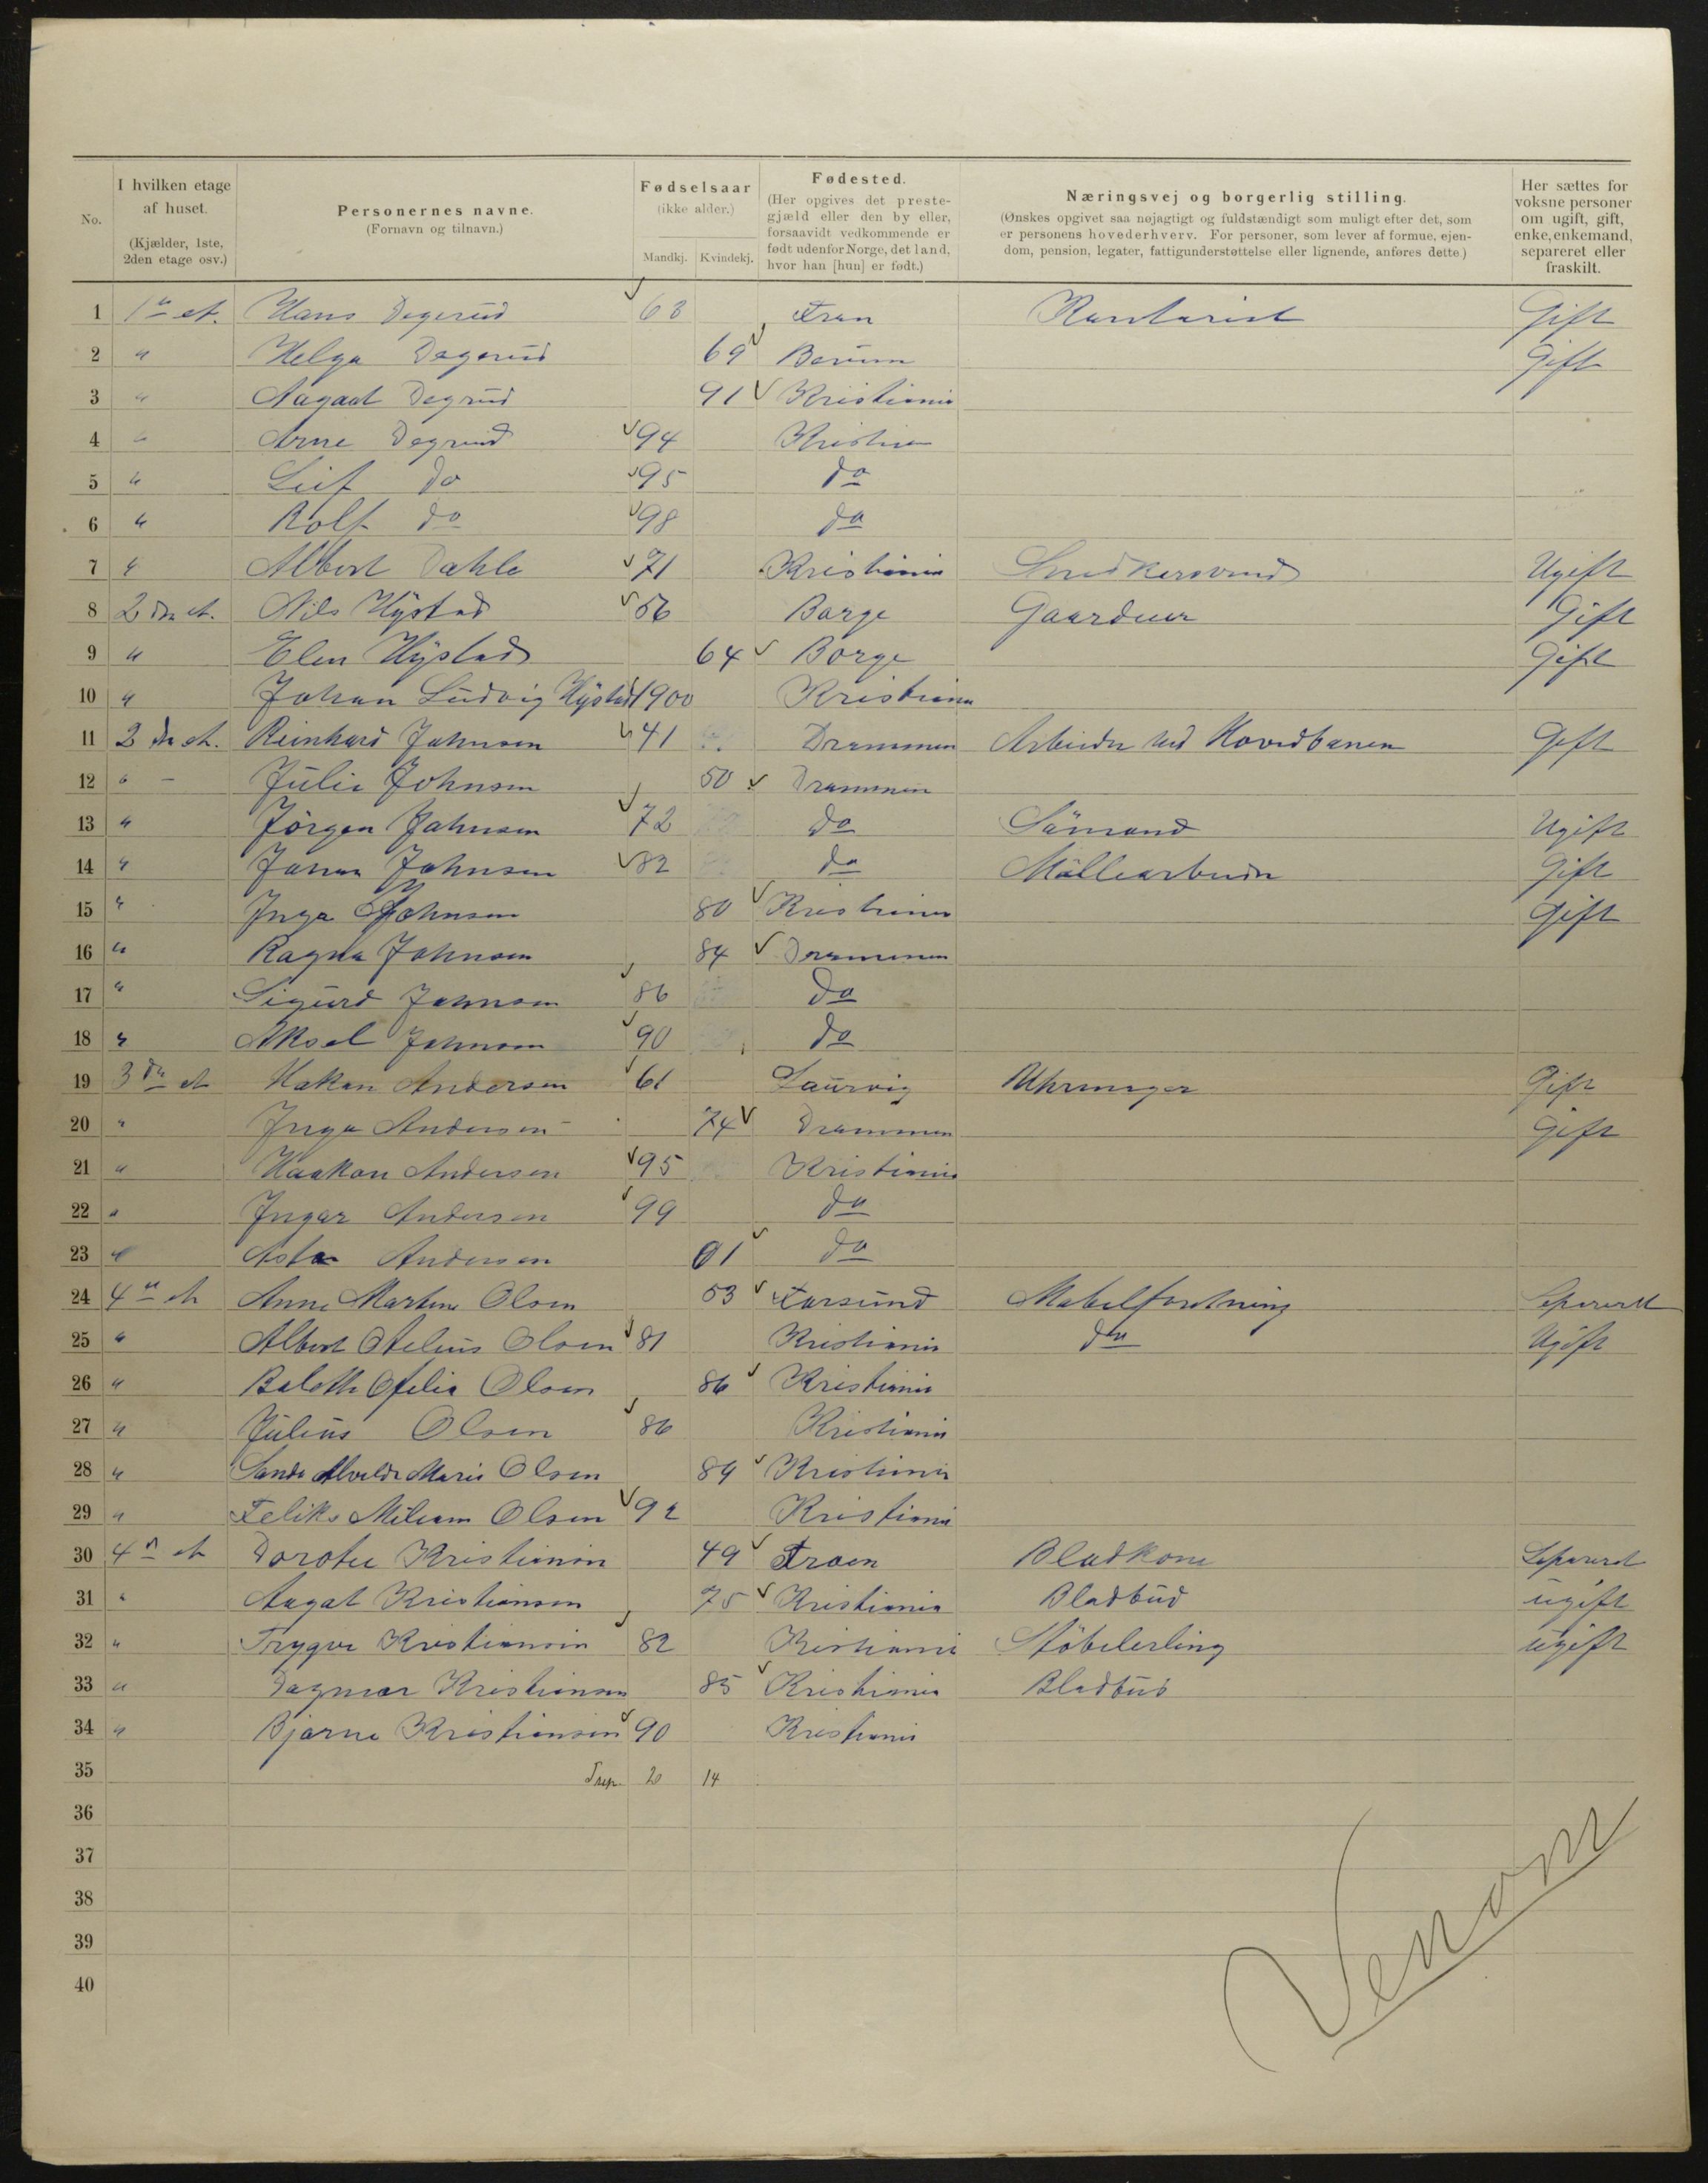 No.
I hvilken etage af huset. (Kjælder, 1ste, 2den etage osv.)
Personernes navne. (Fornavn og tilnavn.)
Fødselsaar (ikke alder.) Mandkj. Kvindekj.
Fødested. (Her opgives det prestegjæld eller den by eller, forsaavidt vedkommende er født udenfor Norge, det land, hvor han [hun] er født.)
Næringsvej og borgerlig stilling. (Ønskes opgivet saa nøjagtigt og fuldstændigt som muligt efter det, som er personens hovederhverv. For personer, som lever af formue, ejendom, pension, legater, fattigunderstøttelse eller lignende, anføres dette)
Her sættes for voksne personer om ugift, gift, enke, enkemand, separeret eller fraskilt.
1 1ste et. Hans Degerud 63 Gift
2 " Helga Degerud 69 Berum Gift
3 " Aagaat Degrud 91 Kristiania
4 " Arne Degrund 94 Kristian
5 " Leif do 95 do
6 " Rolf do 98 do
7 " Albert Dahle 71 Kristiania Snedkersvend Ugift
8 2den et. Nils Hÿstad 56 Borge Gaardeier Gift
9 " Elen Hÿstad 64 Borge Gift
10 " Johan Ludvig Hÿstad 1900 Kristiania
11 2den et. Reinhard Johnsen 41 Drammen Arbeider ved Hovedbanen Gift
12 " – Julie Johnsen 50 Drammen
13 " Jörgen Johnsen 72 do Sömand Ugift
14 " Johnsen 82 do Möllearbeider Gift
15 " Inga Johnsen 80 Kristiania Gift
16 " Ragna Johnsen 84 Drammen
17 " Sigurd Johnsen 86 do
18 " Aksel Johnsen 90 do
19 3die et Hakon Andersen 61 Laurvig Uhrmager Gift
20 " Inga Andersen 74 Drammen Gift
21 " Haakon Andersen 95 Kristiania
22 " Ingar Andersen 99 do
23 " Asta Andersen 01 do
24 4de et Anne Martine Olsen 53 Farsund Möbelforretning Separert
25 " Albert Ofelius Olsen 81 Kristiania do Ugift
26 " Ofelia Olsen 86 Kristiania
27 " Julius Olsen 86 Kristiania
28 " Marie Olsen 89 Kristiania
29 " Feliks Olsen 92 Kristiania
30 4de et Dorotee Kristiansen 49 Bladkone Separert
31 " Aagat Kristiansen 75 Kristiania Bladbud ugift
32 " Trygve Kristiansen 82 Kristiania Støberlerling ugift
33 " Dagmar Kristiansen 85 Kristiania Bladbud
34 " Bjarne Kristiansen 90 Kristiania
35 20 14
36
37
38
39
40